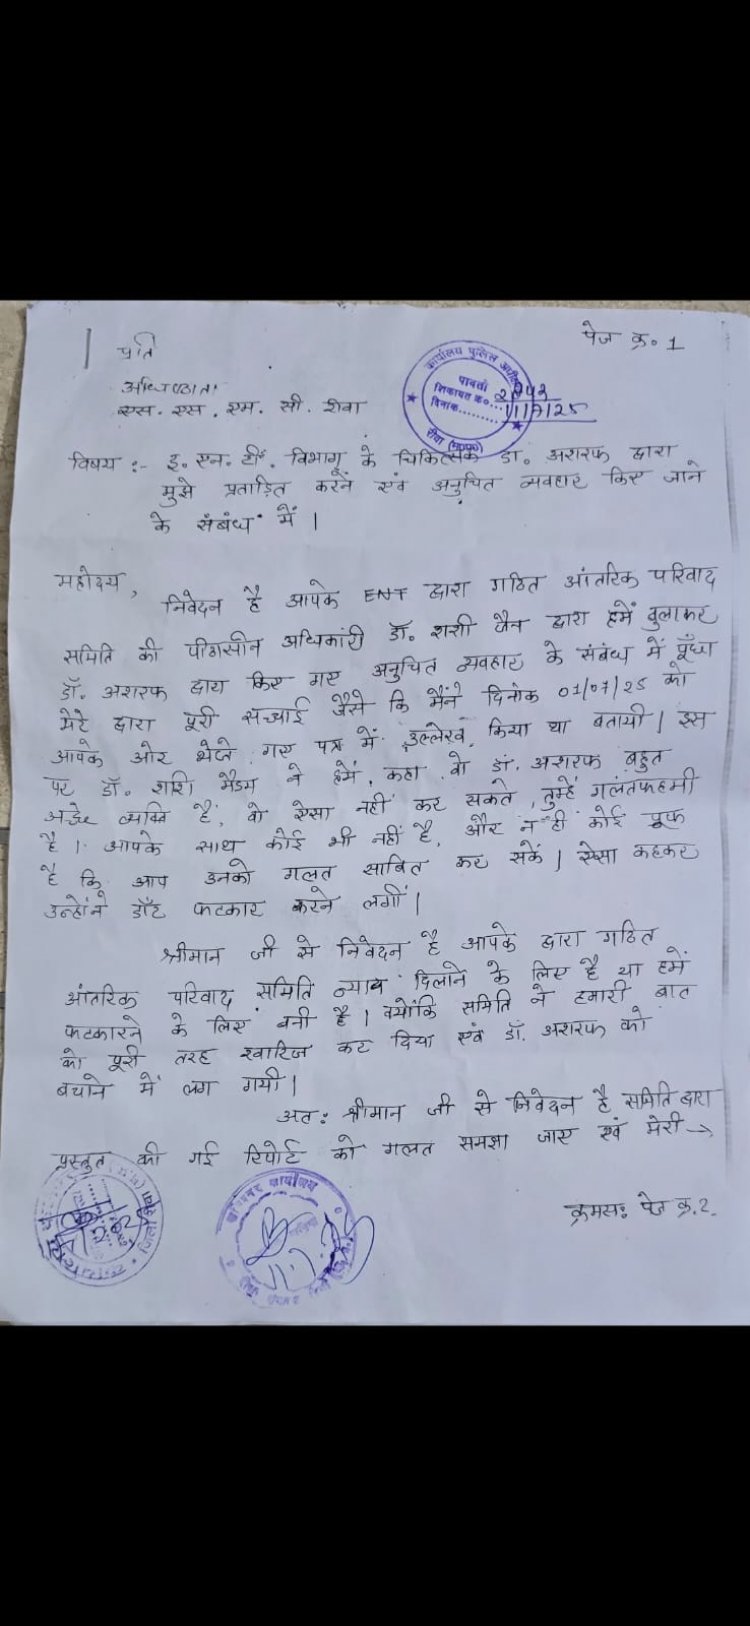 पेज क्र. 1
प्रति
अधिष्ठाता
एस. एस. एम. सी. रीवा
कार्यालय पुलिस अधीक्षक
पावती
शिकायत क्र०
दिनांक 11/7/25
रीवा (म०प्र०)
विषय :- इ. एन. टी. विभाग के चिकित्सक डा. अशरफ द्वारा
मुझे प्रताड़ित करने एवं अनुचित व्यवहार किए जाने
के संबंध में |
महोदय,
निवेदन है आपके ENT द्वारा गठित आंतरिक परिवाद
समिति की पीठासीन अधिकारी डॉ. शशी जैन द्वारा हमें बुलाकर
डॉ. अशरफ द्वारा किए गए अनुचित व्यवहार के संबंध में पूँछा
मेरे द्वारा पूरी सच्चाई जैसे कि मैंने दिनांक 01/07/25 को
आपके ओर भेजे गए पत्र में उल्लेख किया था बतायी | इस
पर डॉ. शशि मैडम ने हमें कहा वो डॉ. अशरफ बहुत
अच्छे व्यक्ति हैं, वो ऐसा नहीं कर सकते, तुम्हें गलतफहमी
है | आपके साथ कोई भी नहीं है, और न ही कोई प्रूफ
है कि आप उनको गलत साबित कर सकें | ऐसा कहकर
उन्होंने डाँट फटकार करने लगीं |
श्रीमान जी से निवेदन है आपके द्वारा गठित
आंतरिक परिवाद समिति न्याय दिलाने के लिए है या हमें
फटकारने के लिए बनी है | क्योंकि समिति ने हमारी बात
को पूरी तरह खारिज कर दिया एवं डॉ. अशरफ को
बचाने में लग गयी |
अतः श्रीमान जी से निवेदन है समिति द्वारा
प्रस्तुत की गई रिपोर्ट को गलत समझा जाए एवं मेरी →
क्रमसः पेज क्र. 2.